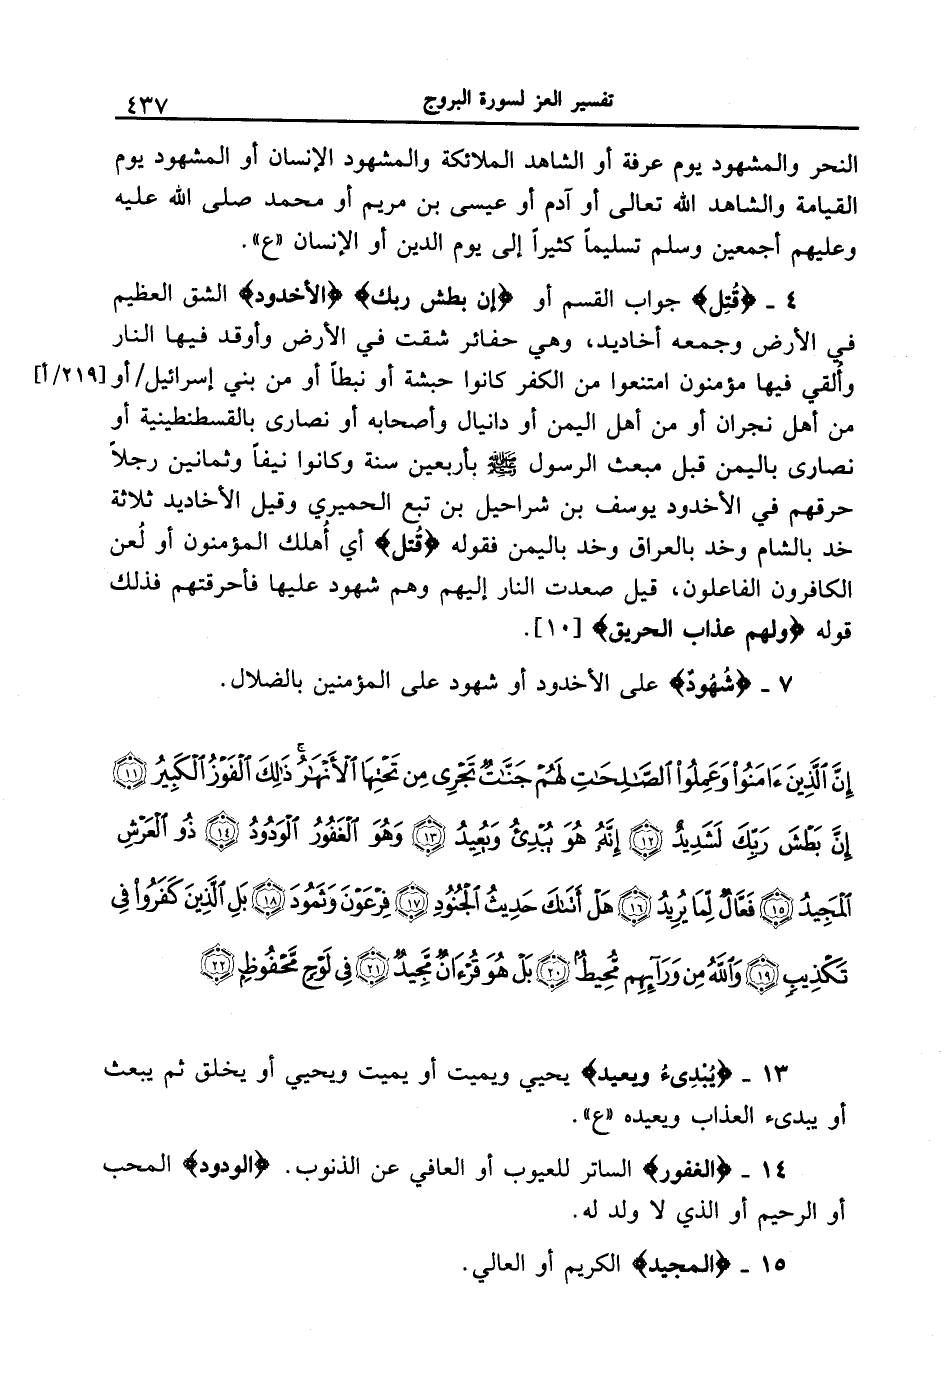 تفسير العز لسورة البروج ٤٣٧
النحر والمشهود يوم عرفة أو الشاهد الملائكة والمشهود الإنسان أو المشهود يوم
القيامة والشاهد الله تعالى أو آدم أو عيسى بن مريم أو محمد صلى الله عليه
وعليهم أجمعين وسلم تسليماً كثيراً إلى يوم الدين أو الإنسان «ع».
٤ ـ ﴿قُتِل﴾ جواب القسم أو ﴿إن بطش ربك﴾ ﴿الأخدود﴾ الشق العظيم
في الأرض وجمعه أخاديد، وهي حفائر شقت في الأرض وأوقد فيها النار
وأُلقي فيها مؤمنون امتنعوا من الكفر كانوا حبشة أو نبطاً أو من بني إسرائيل/ أو [٢١٩/أ]
من أهل نجران أو من أهل اليمن أو دانيال وأصحابه أو نصارى بالقسطنطينية أو
نصارى باليمن قبل مبعث الرسول ﷺ بأربعين سنة وكانوا نيفاً وثمانين رجلاً
حرقهم في الأخدود يوسف بن شراحيل بن تبع الحميري وقيل الأخاديد ثلاثة
خد بالشام وخد بالعراق وخد باليمن فقوله ﴿قُتل﴾ أي أُهلك المؤمنون أو لُعن
الكافرون الفاعلون، قيل صعدت النار إليهم وهم شهود عليها فأحرقتهم فذلك
قوله ﴿ولهم عذاب الحريق﴾ [١٠].
٧ ـ ﴿شُهُودٌ﴾ على الأخدود أو شهود على المؤمنين بالضلال.
إِنَّ ٱلَّذِينَ ءَامَنُوا۟ وَعَمِلُوا۟ ٱلصَّـٰلِحَـٰتِ لَهُمْ جَنَّـٰتٌ تَجْرِى مِن تَحْتِهَا ٱلْأَنْهَـٰرُ ۚ ذَٰلِكَ ٱلْفَوْزُ ٱلْكَبِيرُ ١١
إِنَّ بَطْشَ رَبِّكَ لَشَدِيدٌ ١٢ إِنَّهُۥ هُوَ يُبْدِئُ وَيُعِيدُ ١٣ وَهُوَ ٱلْغَفُورُ ٱلْوَدُودُ ١٤ ذُو ٱلْعَرْشِ
ٱلْمَجِيدُ ١٥ فَعَّالٌ لِّمَا يُرِيدُ ١٦ هَلْ أَتَىٰكَ حَدِيثُ ٱلْجُنُودِ ١٧ فِرْعَوْنَ وَثَمُودَ ١٨ بَلِ ٱلَّذِينَ كَفَرُوا۟ فِى
تَكْذِيبٍ ١٩ وَٱللَّهُ مِن وَرَآئِهِم مُّحِيطٌۢ ٢٠ بَلْ هُوَ قُرْءَانٌ مَّجِيدٌ ٢١ فِى لَوْحٍ مَّحْفُوظٍۭ ٢٢
١٣ ـ ﴿يُبْدِىءُ ويعيد﴾ يحيي ويميت أو يميت ويحيي أو يخلق ثم يبعث
أو يبدىء العذاب ويعيده «ع».
١٤ ـ ﴿الغفور﴾ الساتر للعيوب أو العافي عن الذنوب. ﴿الودود﴾ المحب
أو الرحيم أو الذي لا ولد له.
١٥ ـ ﴿المجيد﴾ الكريم أو العالي.